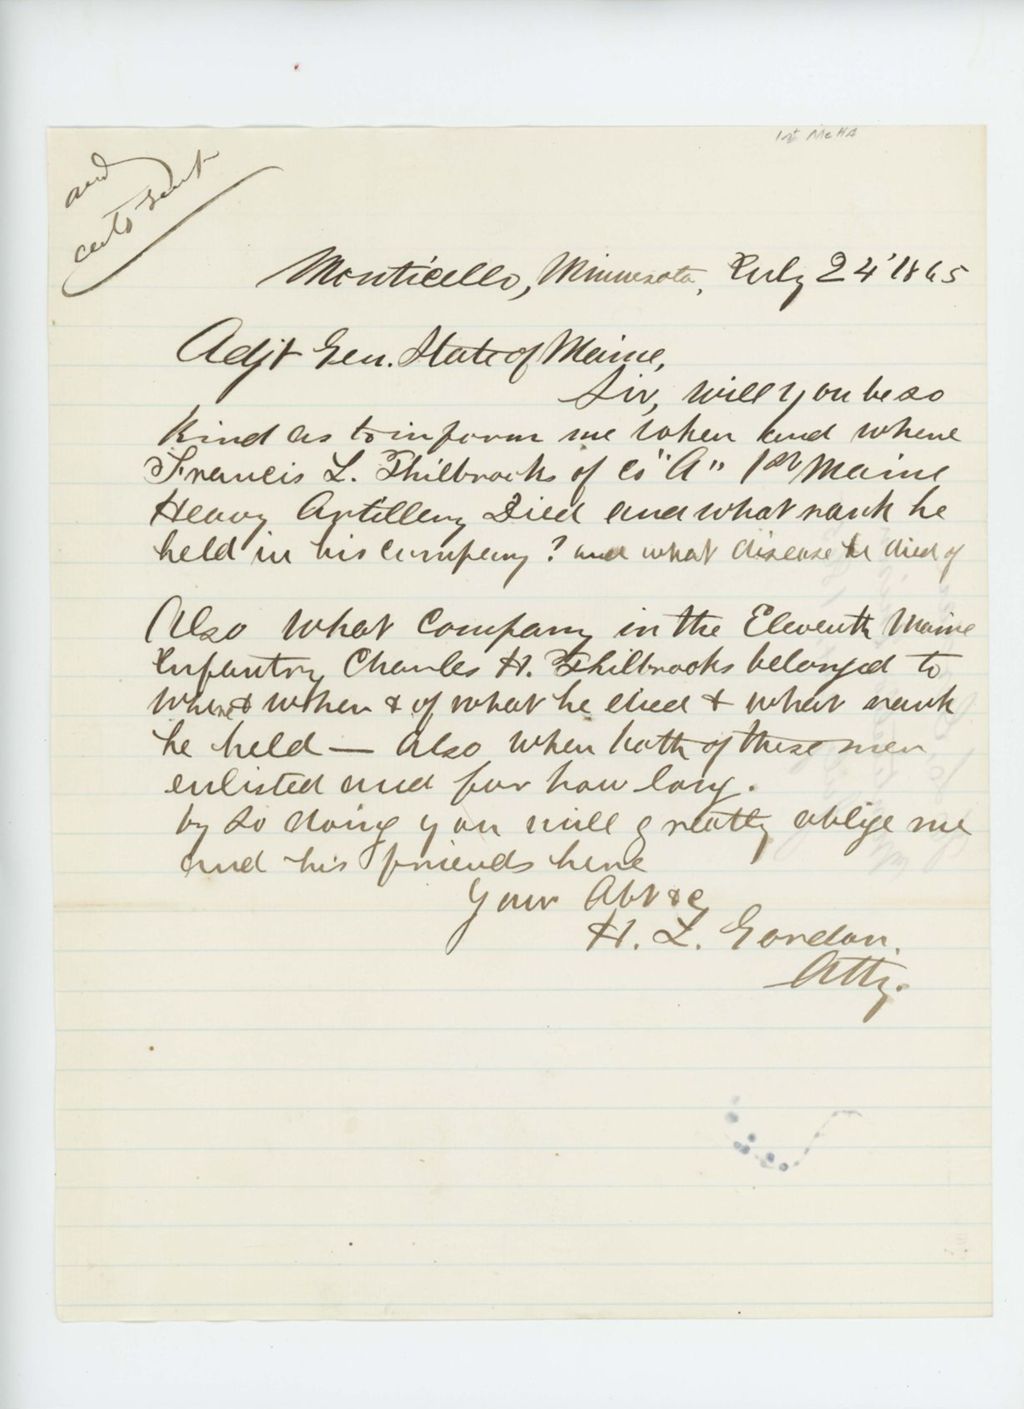 1st Me HA
and
certs sent
Monticello, Minnesota, July 24' 1865
Adjt Gen. State of Maine,
Sir, will you be so
kind as to inform me when and where
Francis L. Philbrooks of Co "A" 1st Maine
Heavy Artillery Died and what rank he
held in his company? and what disease he died of
Also what Company in the Eleventh Maine
Infantry Charles H. Philbrooks belonged to
where & when & of what he died & what rank
he held — also when both of these men
enlisted and for how long.
by so doing you will greatly oblige me
and his friends here
Your Obt &c
H. L. Gordon.
Atty.